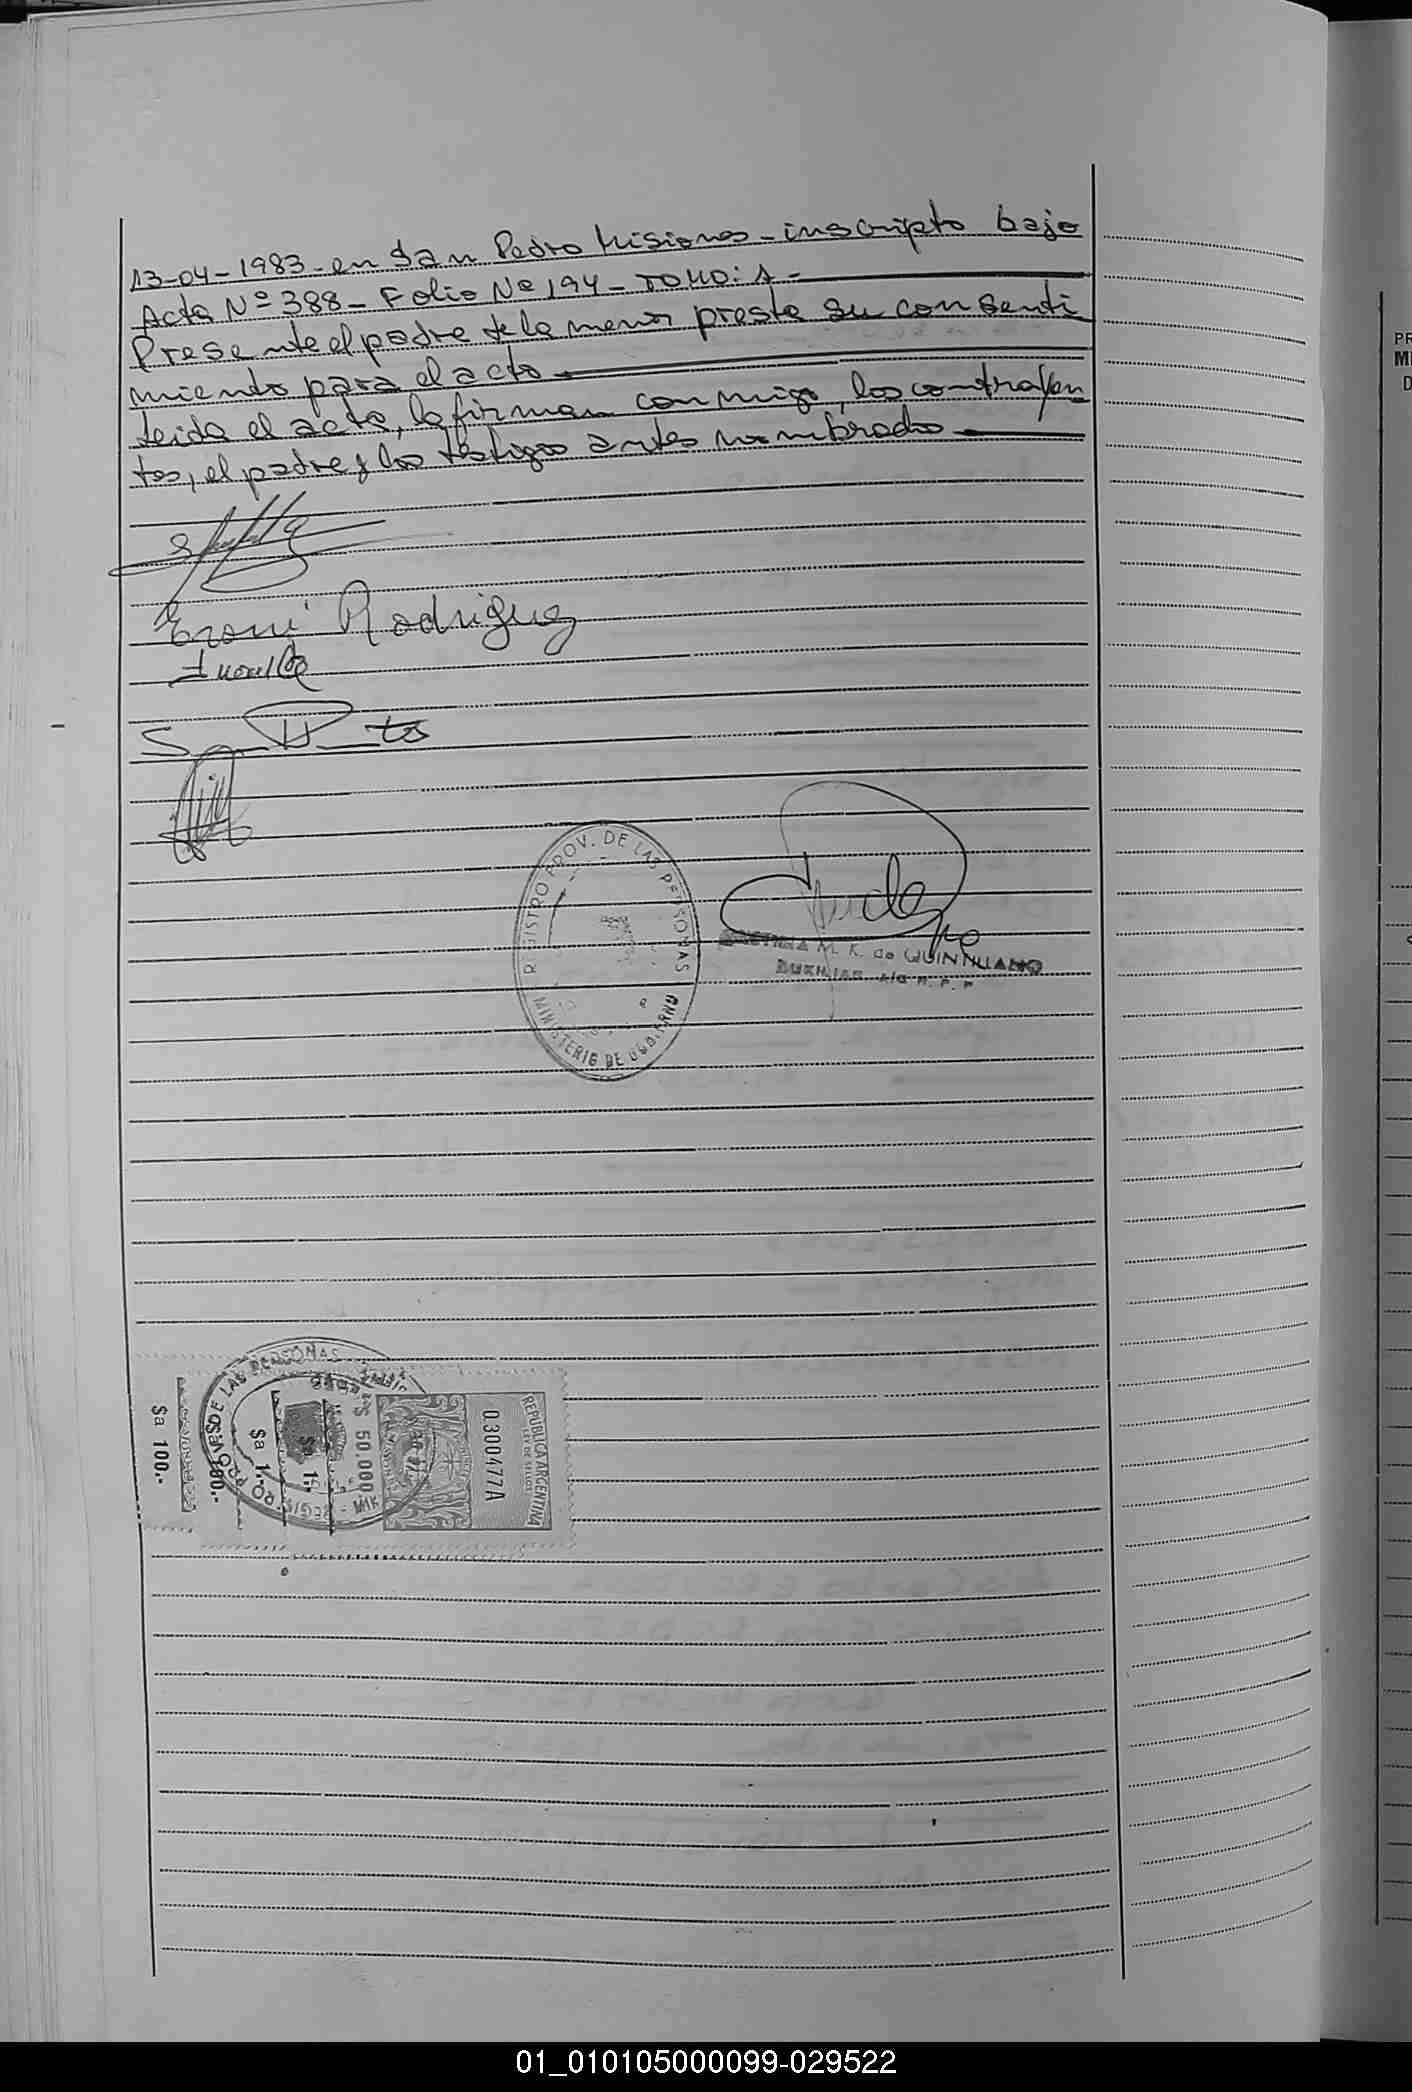 13-04-1983-en San Pedro Misiones-inscripto bajo
Acta Nº 388- Folio Nº 194- TOMO: A-
Presente el padre de la menor presta su consenti
miento para el acto
Leida el acta, la firman conmigo, los contrayen
tes, el padre y los testigos antes nombrados
Eroni Rodriguez
REGISTRO PROV. DE LAS PERSONAS
MINISTERIO DE GOBIERNO
M. K. de QUINHUANO
AUXILIAR A/C R. P. P.
REPUBLICA ARGENTINA
LEY DE SELLOS
0300477A
$ 50.000
$a 1.-
$a 1.-
100.-
$a 100.-
DE LAS PERSONAS
PR
MI
D
01_010105000099-029522